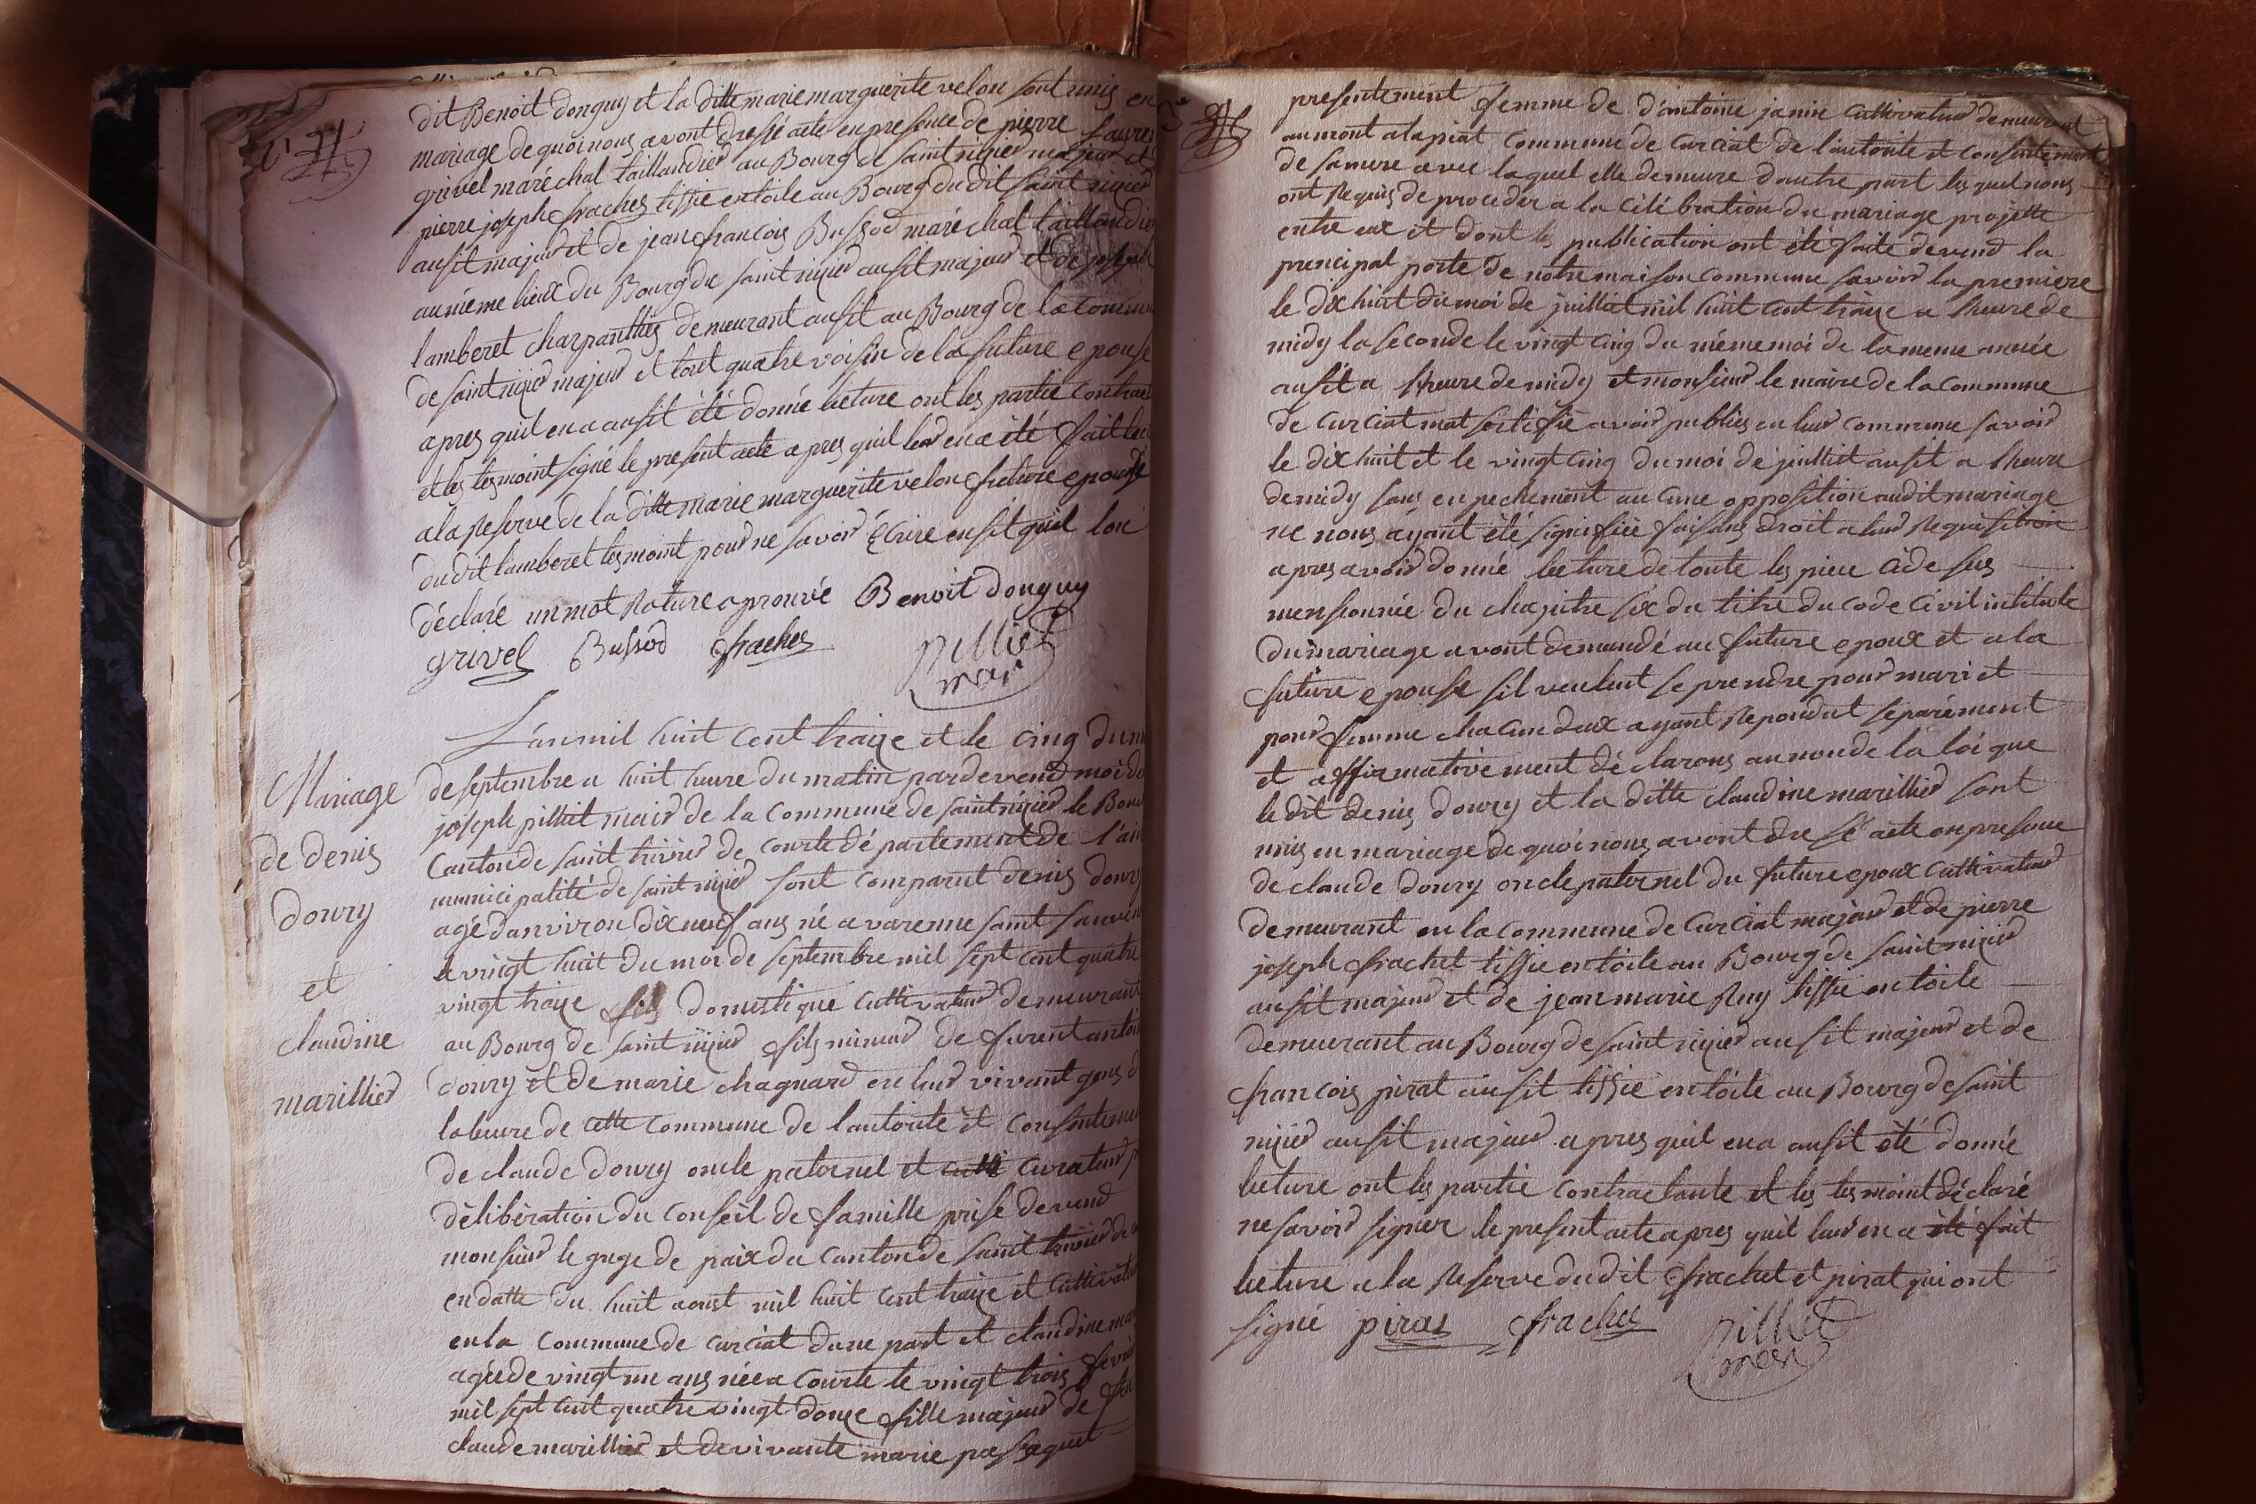 dit Benoit donguy et la ditte marie marguerite velon sont unis en
mariage de quoi nous avont dressé acte en presence de pierre
grivel maréchal taillandier au Bourg de saint nizier majeur et
pierre joseph frachet tissie en toile au Bourg du dit saint nizier
ausit majeur et de jean francois Bussod maréchal taillandier
au même lieux du Bourg de saint nizier ausit majeur et de joseph
lamberet charpanthié demeurant ausit au Bourg de la commu
de saint nizier majeur et tout quatre voisin de la future epouse
apres quil en a ausit été donné lecture ont les partie contrac
et les tesmoint signé le present acte apres quil leur en a été fait lec
a la Reserve de la ditte marie marguerite velon future epouse
du dit lamberet tesmoint pour ne savoir Ecrire ensit quil lon
déclaré un mot Rature aprouvé Benoit donguy
grivel Bussod frachet pilliet
mair
Mariage
de denis
doury
et
claudine
marillier
L'an mil huit cent traize et le cinq du m
de septembre a huit heure du matin pardevend moi
joseph pilliet mair de la commune de saint nizier le Bou
Canton de saint trivier de courte département de l'ain
municipalité de saint nizier sont comparut denis doury
agé danviron dix neuf ans né a varenne saint sauveu
le vingt huit du moi de septembre mil sept cent quatre
vingt traize fils domestique cultivateur demeurant
au Bourg de saint nizier fils mineur de furent antoi
doury et de marie chagnard en leur vivant gens d
labeure de cette commune de lautorité et consenteme
de claude doury oncle paternel et culti curateur p
délibération du conseil de famille prise devend
monsieur le guge de paix du canton de saint trivier de
en datte du huit aoust mil huit cent traize et cultivate
en la commune de curciat dune part et claudine mar
agée de vingt un ans née a courte le vingt trois fevri
mil sept cent quatre vingt douze fille majeur de
claude marillier et de vivante marie passaquet
presentement femme de d'antoine janin cultivateur demeurant
au mont a la piat commune de curciat de lautorité et consentement
de sa mere avec laquel elle demeure dautre part lesquel nous
ont Requis de proceder a la célébration du mariage projetté
entre eux et dont les publication ont été faite devend la
principal porte de notre maison commune savoir la premiere
le dix huit du moi de juillet mil huit cent traize a lheure de
midy la seconde le vingt cinq du méme moi de la meme année
ausit a lheure de midy et monsieur le maire de la commune
de curciat mat sertifié avoir publies en leur commune savoir
le dix huit et le vingt cinq du moi de juilliet ausit a lheure
de midy sans enpechement aucune opposition audit mariage
ne nous ayant été signifiée faisans droit a leur Requisition
apres avoir donné lecture de toute les piece ci de sus
mensionnée du chapitre six du titre du code civil intitule
du mariage avont demandé au future epoux et a la
future epouse sil veulent se prendre pour mari et
pour femme chacun deux ayant Repondut séparément
et affirmativement déclarons au nom de la loi que
le dit denis doury et la ditte claudine marillier sont
unis en mariage de quoi nous avont dressé acte en presence
de claude doury oncle paternel du future epoux cultivateur
demeurant en la commune de curciat majeur et de pierre
joseph frachet tissie en toile au Bourg de saint nizier
ausit majeur et de jean marie Ruy tissie en toile
demeurant au Bourg de saint nizier ausit majeur et de
francois pirat ausit tissié en toile au Bourg de saint
nizier ausit majeur apres quil en a ausit été donné
lecture ont les partie contractante et les tesmoint déclaré
ne savoir signer le present acte apres quil leur en a été fait
lecture a la Reserve du dit frachet et pirat qui ont
signé pirat frachet pilliet
mair